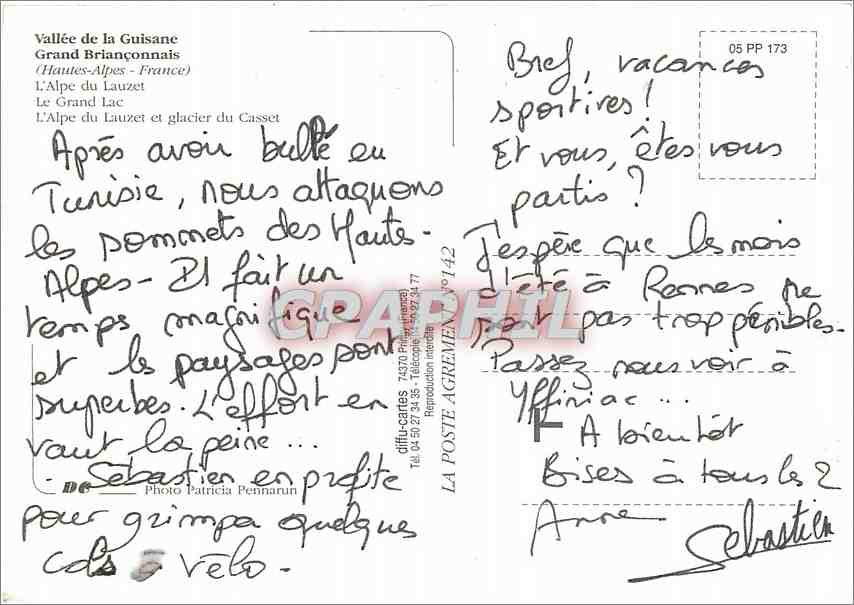 Vallée de la Guisane
Grand Briançonnais
(Hautes-Alpes - France)
L'Alpe du Lauzet
Le Grand Lac
L'Alpe du Lauzet et glacier du Casset
Après avoir bullé en
Tunisie, nous attaquons
les sommets des Hautes-
Alpes - Il fait un
temps magnifique
et les paysages sont
superbes. L'effort en
vaut la peine ...
- Sébastien en profite
pour grimpa quelques
cols à vélo -
DC Photo Patricia Pennarun
diffu-cartes 74370 Pringy (France)
Tél. 04 50 27 34 35 - Télécopie 04 50 27 34 77
Reproduction interdite
LA POSTE AGREMENT N° 142
CPAPHIL
05 PP 173
Bref, vacances
sportives !
Et vous, êtes vous
partis ?
J'espère que les mois
d'été à Rennes ne
sont pas trop pénibles.
Passez nous voir à
Yffiniac ...
A bientôt
Bises à tous les 2
Anne
Sébastien